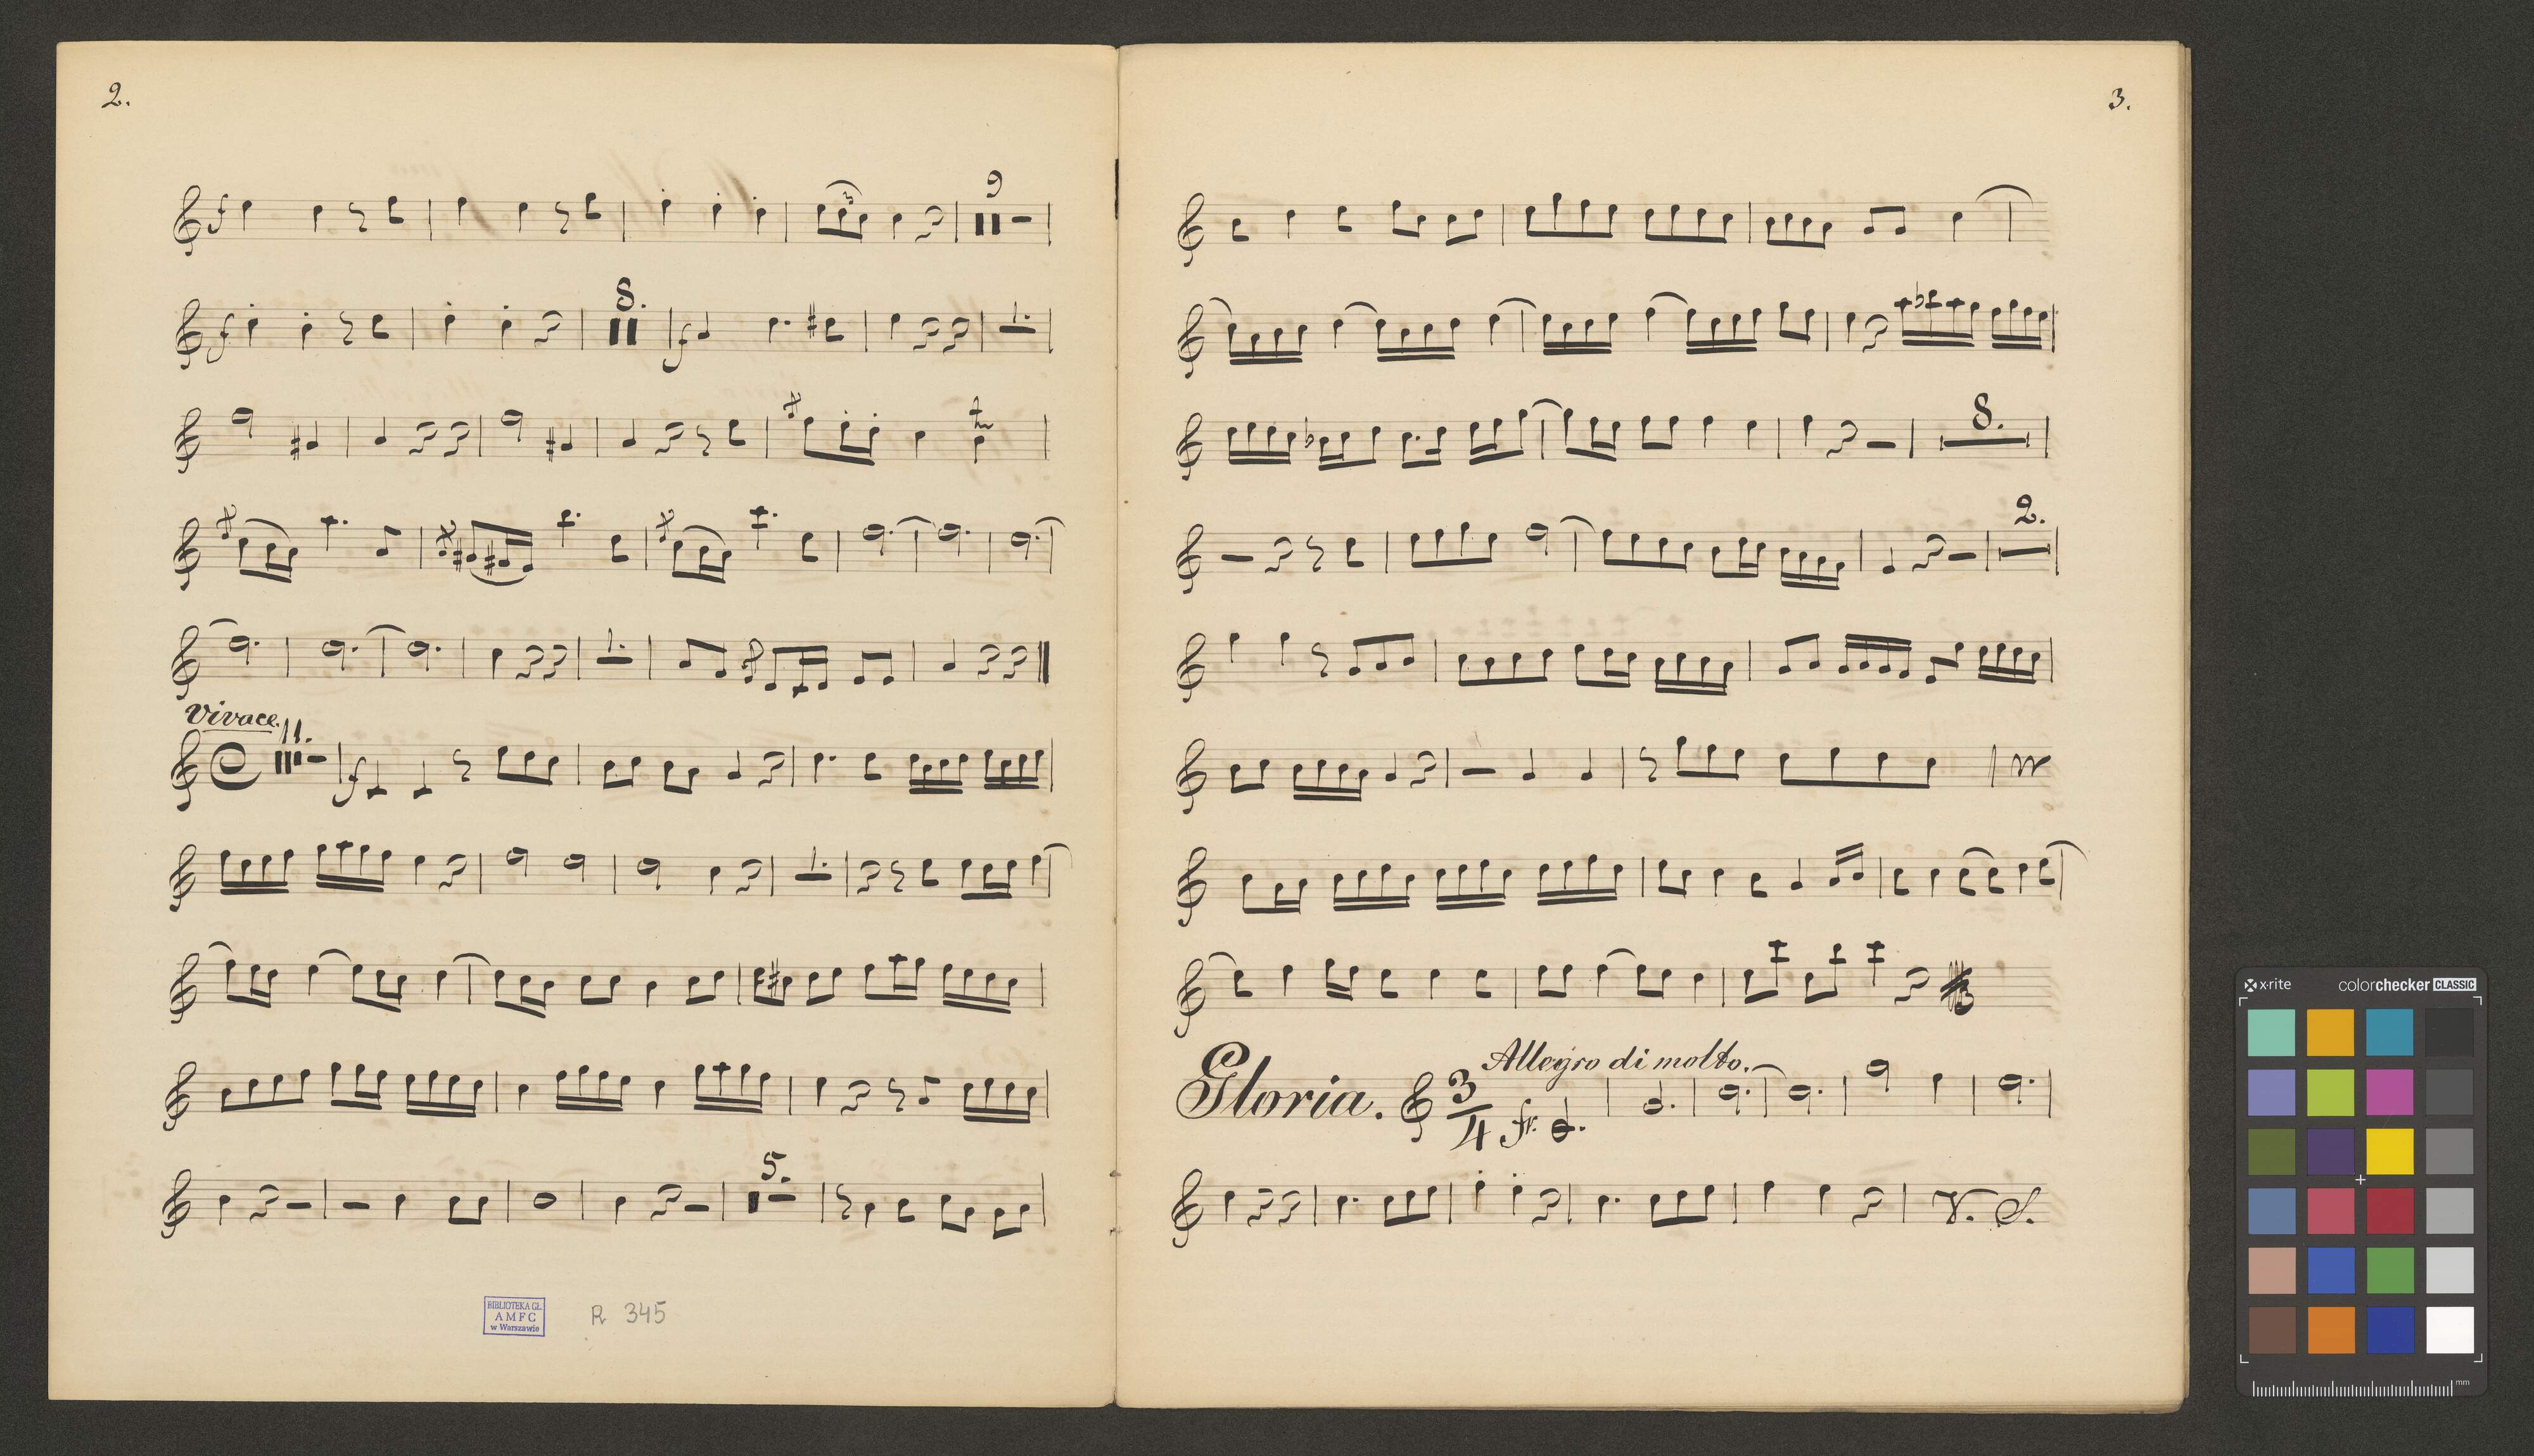 2.
f
3
9
f
8.
f
1.
tr
1.
Vivace.
11.
f
1.
5.
BIBLIOTEKA GŁ.
AMFC
w Warszawie
R 345
3.
8.
2.
Gloria.
Allegro di molto.
3
4
V. S.
x-rite
colorchecker CLASSIC
mm